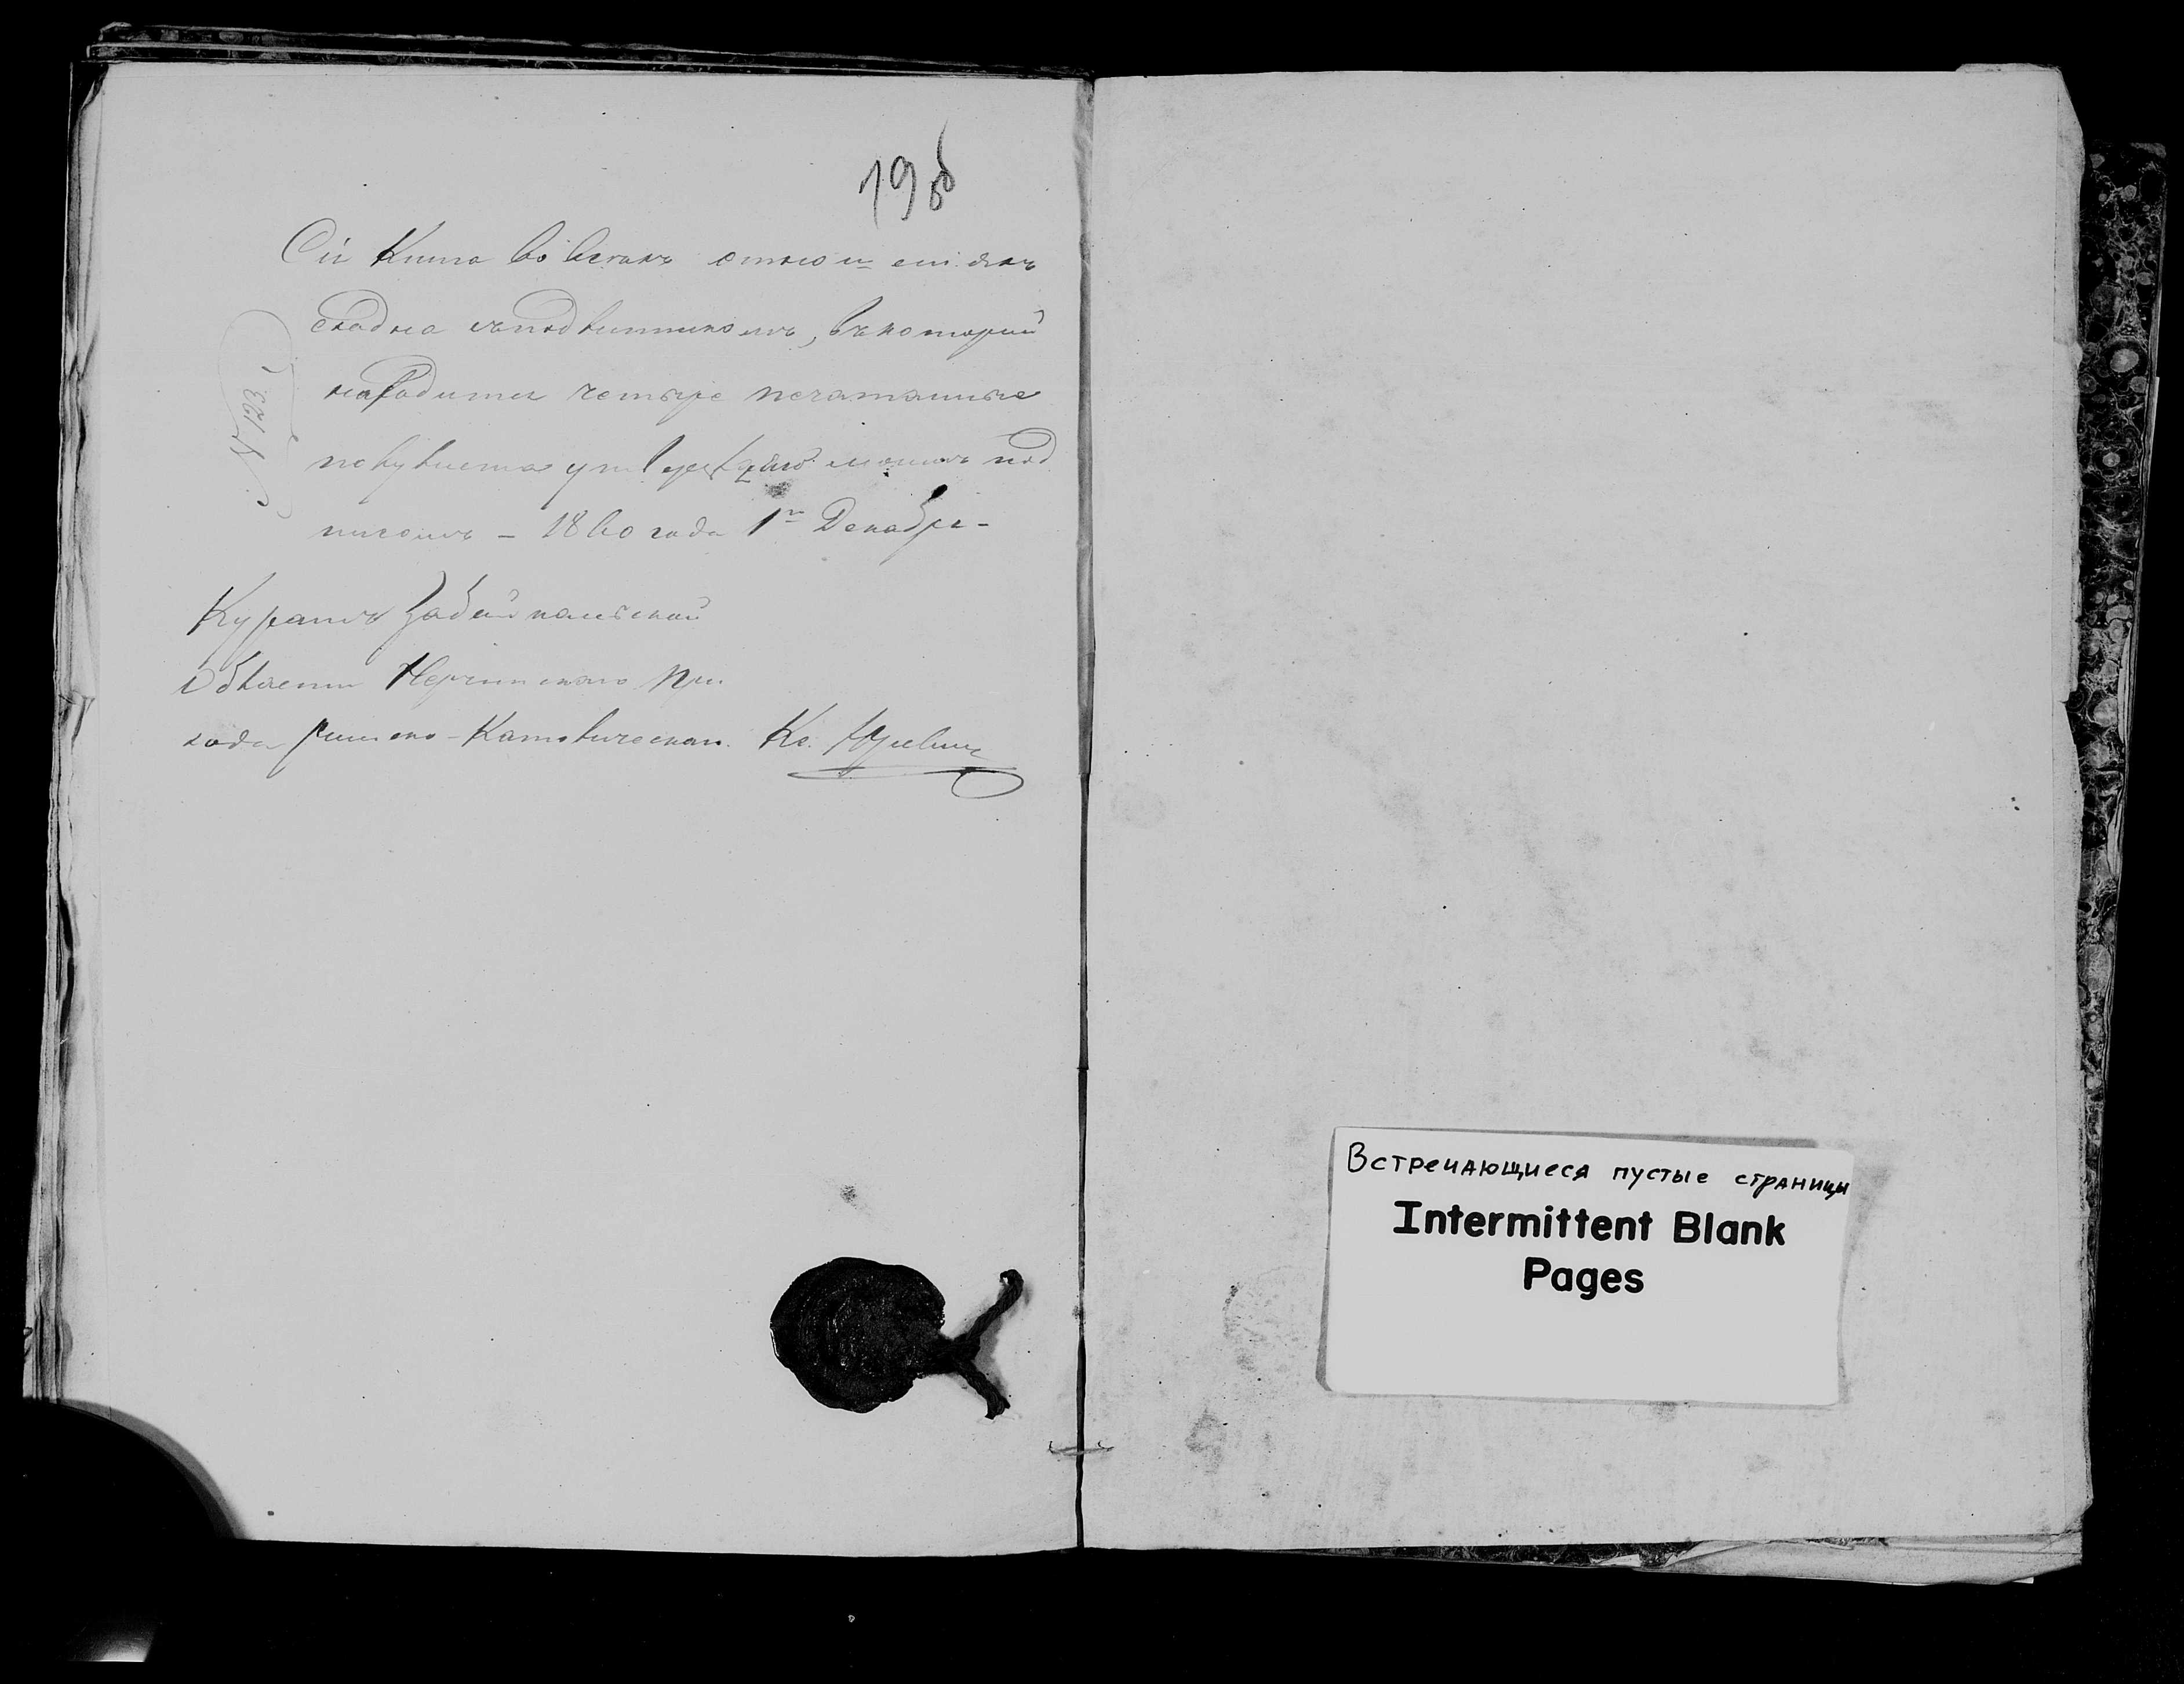 198
Сія Книга во всемъ
сходна съ подлинникомъ, въ которой
находится четыре печатанные
полулиста под
писомъ – 1860 года 1го Декабря –
№ 123.
Куратъ Забайкальской
Области Нерчинскаго При
хода Римско-Католическаго Кс.
Встречающиеся пустые страницы
Intermittent Blank
Pages